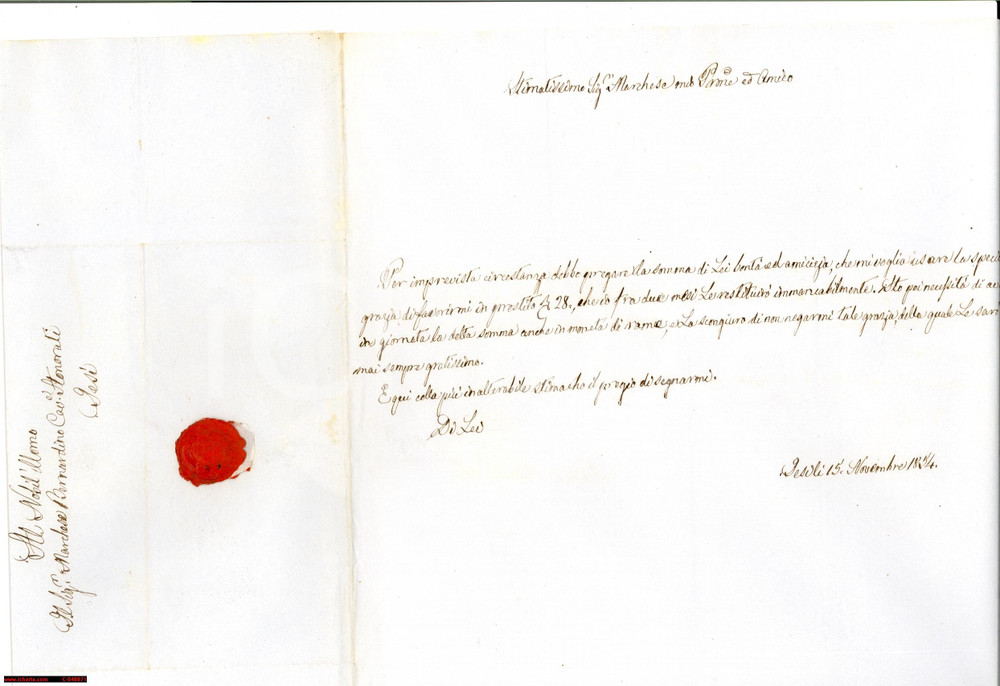 Stimatissimo Sig.r Marchese mio Prone ed Amico
Per imprevista circostanza debbo pregare la somma di Lei bontà ed amicizia, che mi voglia usare la speci
grazia, di favorirmi in prestito 28., che io fra due mesi Le restituirò immancabilmente. Ho poi necessità di a
in giornata la detta somma anche in moneta di rame, e La scongiuro di non negarmi tale grazia, della quale Le sarò
mai sempre gratissimo.
E qui colla più inalterabile stima ho il pregio di segnarmi.
Di Lei
Jesi li 15. Novembre 1834.
Al Nobil' Uomo
Il Sig.r Marchese Bernardino Cav. Honorati
Jesi
www.isharta.com